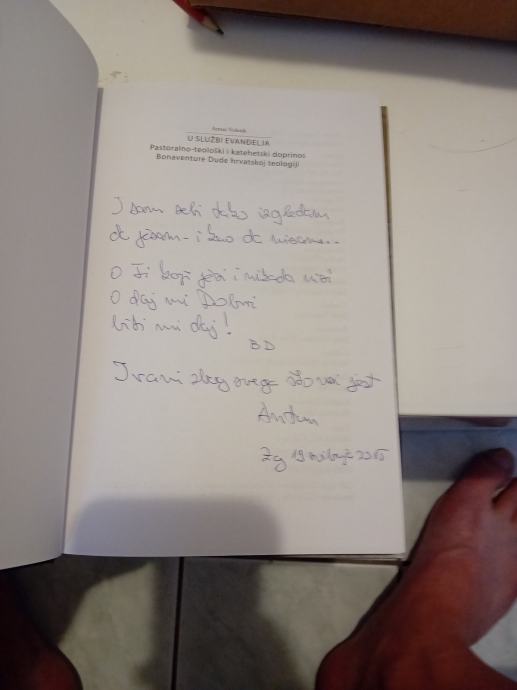 Antun Volenik
U SLUŽBI EVANĐELJA
Pastoralno-teološki i katehetski doprinos
Bonaventure Dude hrvatskoj teologiji
I sam sebi tako izgledam
da jesam - i kao da nisam...
O Ti koji jesi i nikada nisi
O daj mi Dobri
biti mi daj!
BD
Ivani zbog svega što jest
Antun
Zg 19